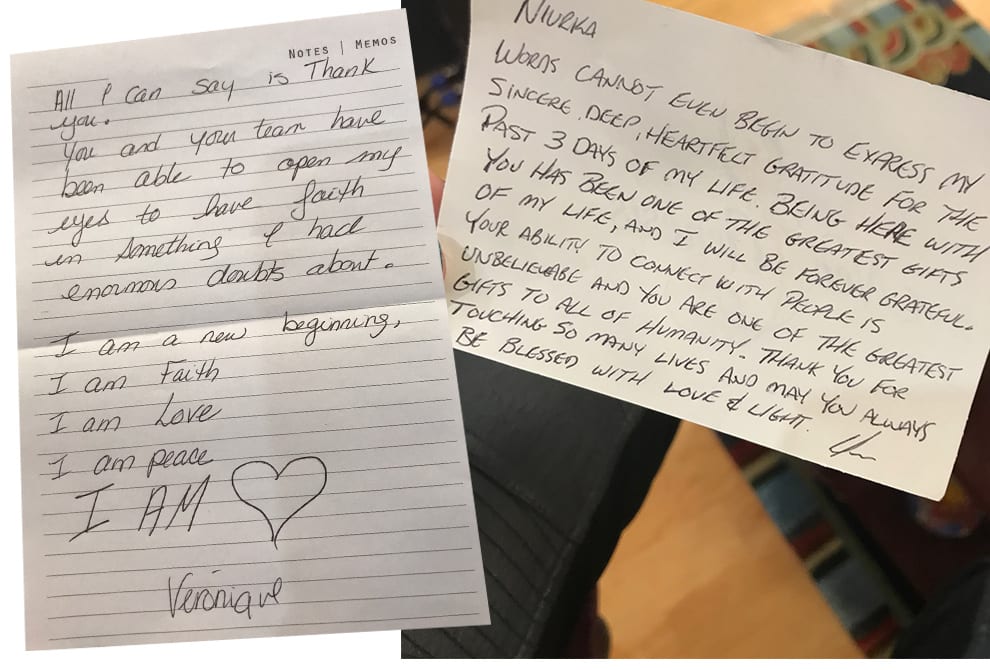 NOTES | MEMOS
All I can say is Thank
you.
You and your team have
been able to open my
eyes to have faith
in something I had
enormous doubts about.
I am a new beginning,
I am Faith
I am Love
I am peace
I AM
Véronique
NIURKA
WORDS CANNOT EVEN BEGIN TO EXPRESS MY
SINCERE, DEEP, HEARTFELT GRATITUDE FOR THE
PAST 3 DAYS OF MY LIFE. BEING HERE WITH
YOU HAS BEEN ONE OF THE GREATEST GIFTS
OF MY LIFE, AND I WILL BE FOREVER GRATEFUL.
YOUR ABILITY TO CONNECT WITH PEOPLE IS
UNBELIEVABE AND YOU ARE ONE OF THE GREATEST
GIFTS TO ALL OF HUMANITY. THANK YOU FOR
TOUCHING SO MANY LIVES AND MAY YOU ALWAYS
BE BLESSED WITH LOVE & LIGHT.